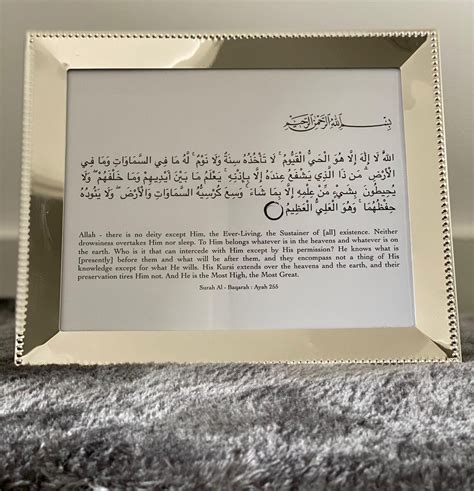 بِسْمِ اللهِ الرَّحْمٰنِ الرَّحِيْمِ
اللَّهُ لَا إِلَٰهَ إِلَّا هُوَ الْحَيُّ الْقَيُّومُ ۚ لَا تَأْخُذُهُ سِنَةٌ وَلَا نَوْمٌ ۚ لَهُ مَا فِي السَّمَاوَاتِ وَمَا فِي
الْأَرْضِ ۗ مَن ذَا الَّذِي يَشْفَعُ عِندَهُ إِلَّا بِإِذْنِهِ ۚ يَعْلَمُ مَا بَيْنَ أَيْدِيهِمْ وَمَا خَلْفَهُمْ ۖ وَلَا
يُحِيطُونَ بِشَيْءٍ مِّنْ عِلْمِهِ إِلَّا بِمَا شَاءَ ۚ وَسِعَ كُرْسِيُّهُ السَّمَاوَاتِ وَالْأَرْضَ ۖ وَلَا يَئُودُهُ
حِفْظُهُمَا ۚ وَهُوَ الْعَلِيُّ الْعَظِيمُ
Allah - there is no deity except Him, the Ever-Living, the Sustainer of [all] existence. Neither
drowsiness overtakes Him nor sleep. To Him belongs whatever is in the heavens and whatever is on
the earth. Who is it that can intercede with Him except by His permission? He knows what is
[presently] before them and what will be after them, and they encompass not a thing of His
knowledge except for what He wills. His Kursi extends over the heavens and the earth, and their
preservation tires Him not. And He is the Most High, the Most Great.
Surah Al - Baqarah : Ayah 255